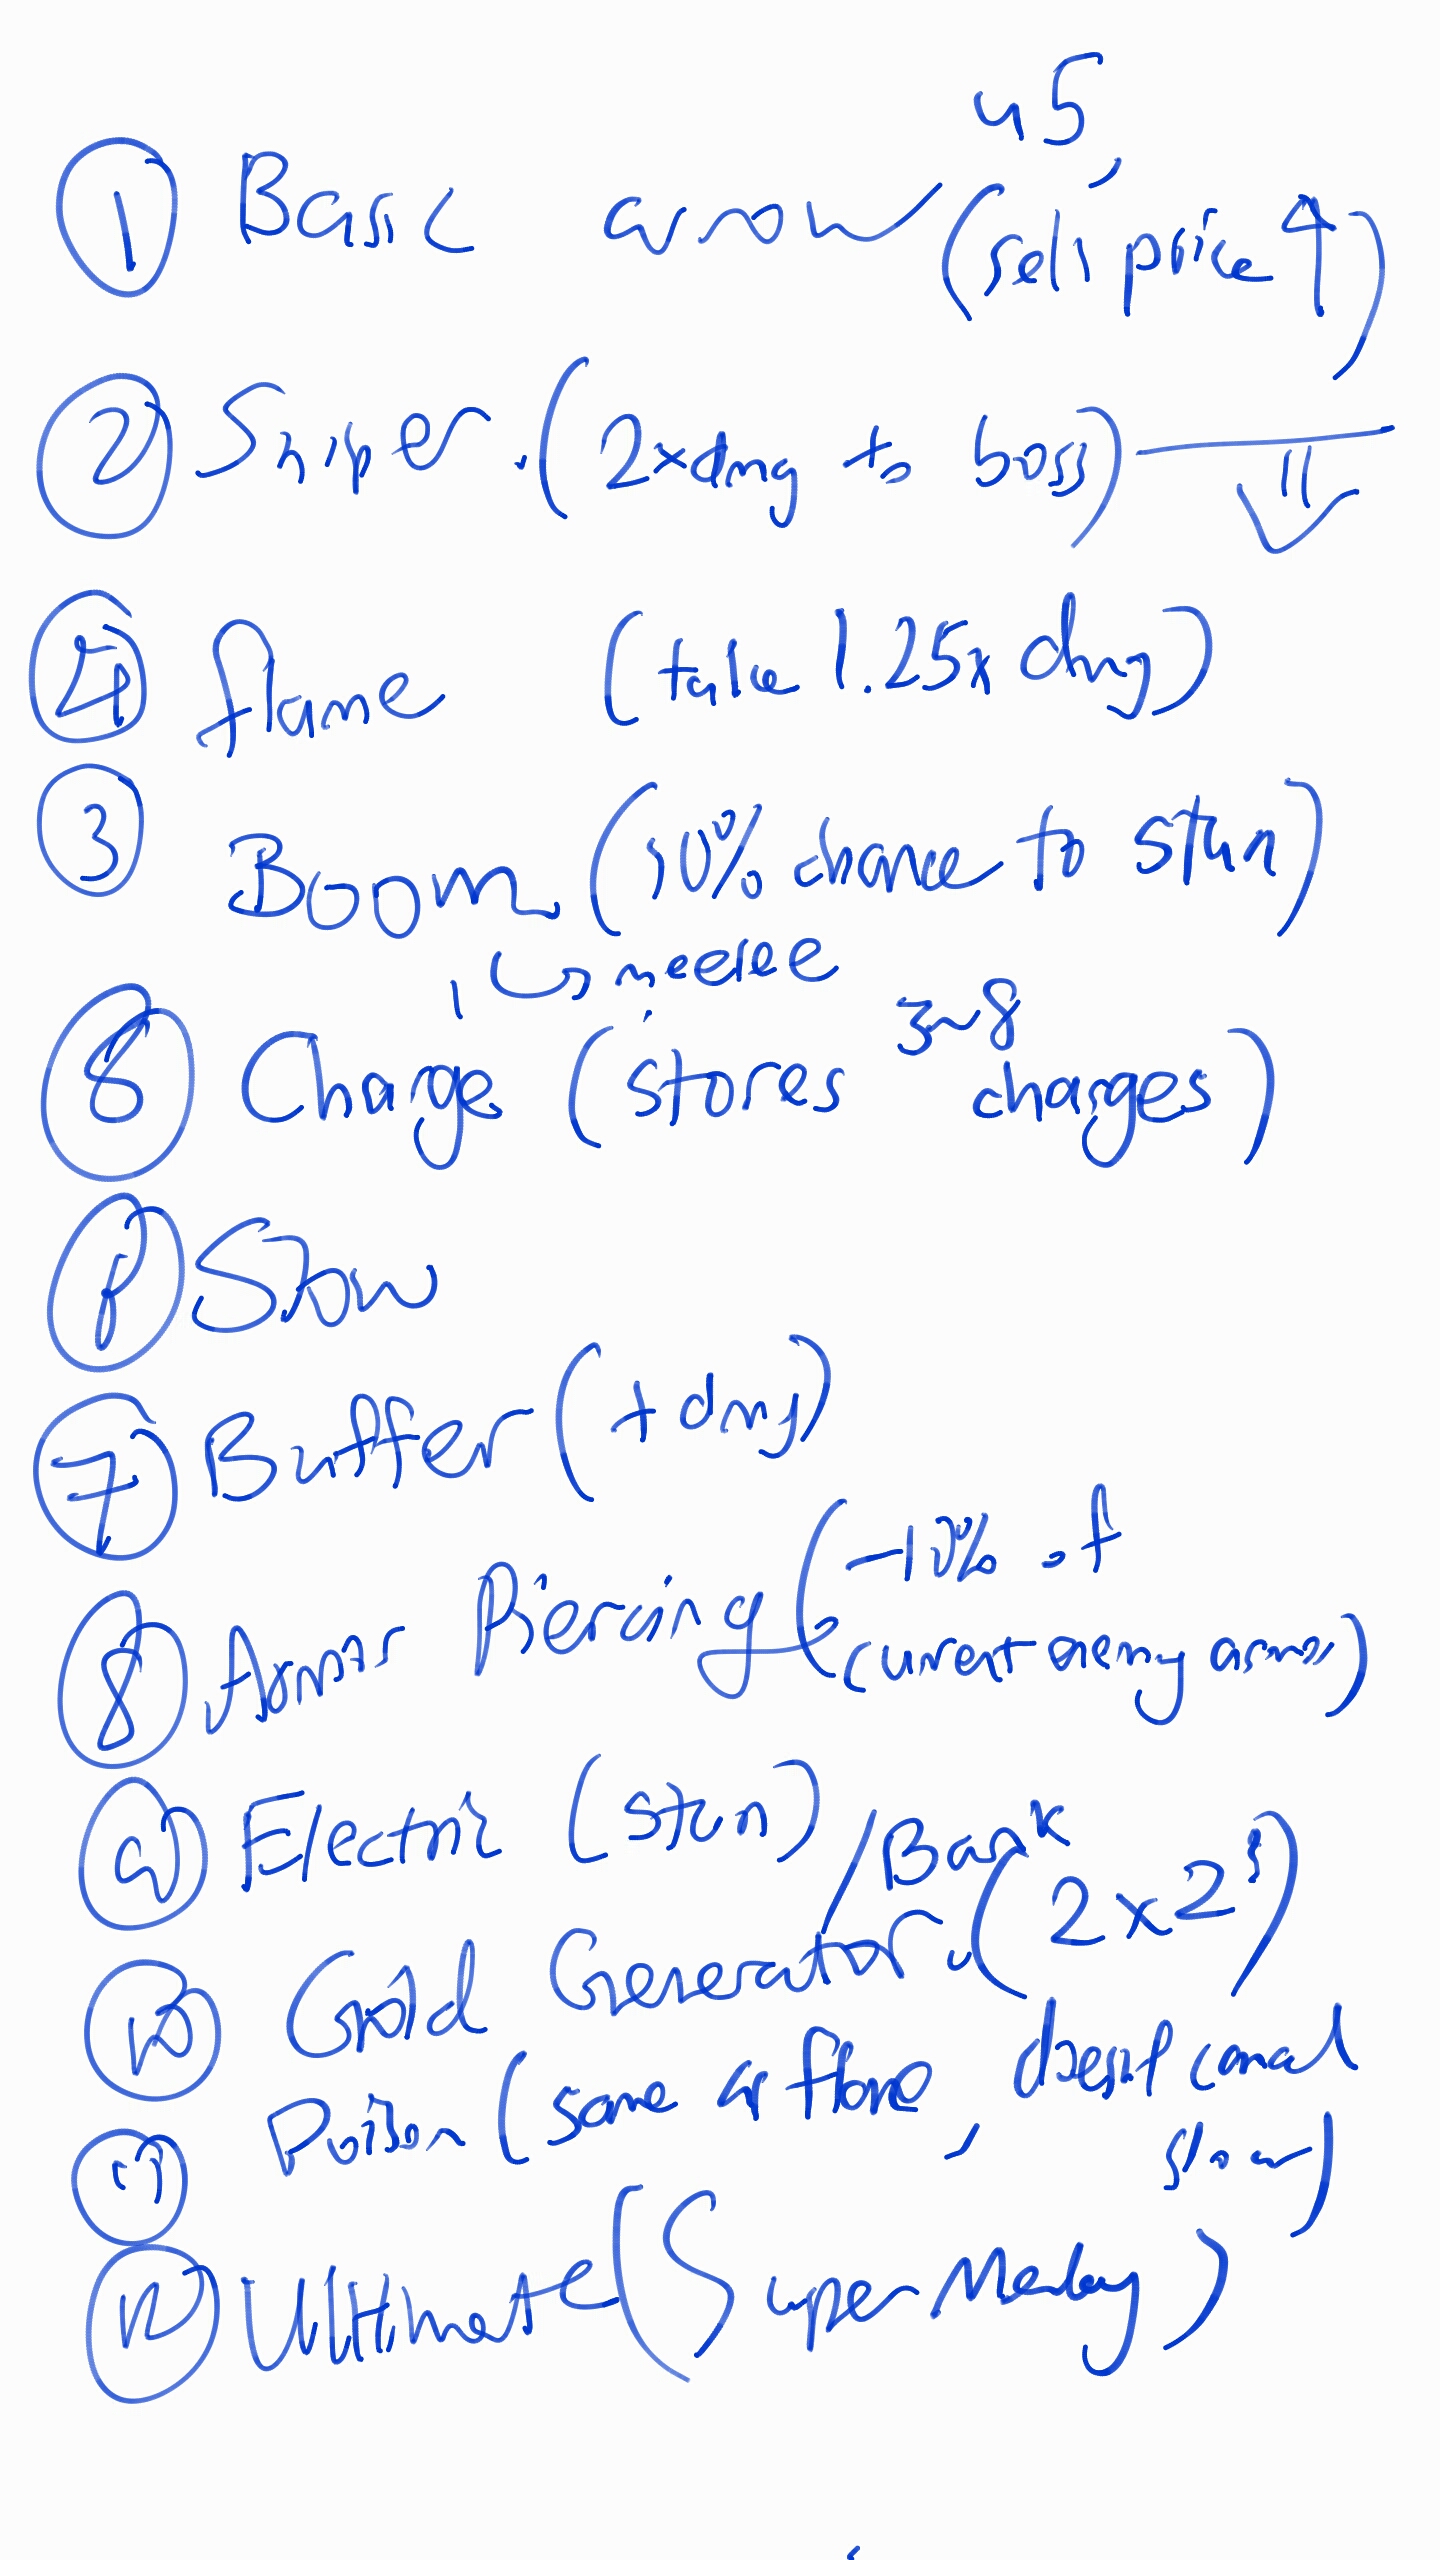 45,
① Basic arrow (sell price ↑)
② Sniper. (2x dmg to boss)
④ flame (take 1.25x dmg)
③ Boom (10% chance to stun)
↳ meelee
3~8
Charge (stores charges)
Slow
⑦ Buffer (+ dmg)
-10% of
⑧ Armor Piercing (current enemy armor)
⑨ Electric (stun)
/Bank
⑩ Gold Generator. (2x2
⑪ Poison (same as flame, doesn't cancel
slow)
⑫ Ultimate (Super